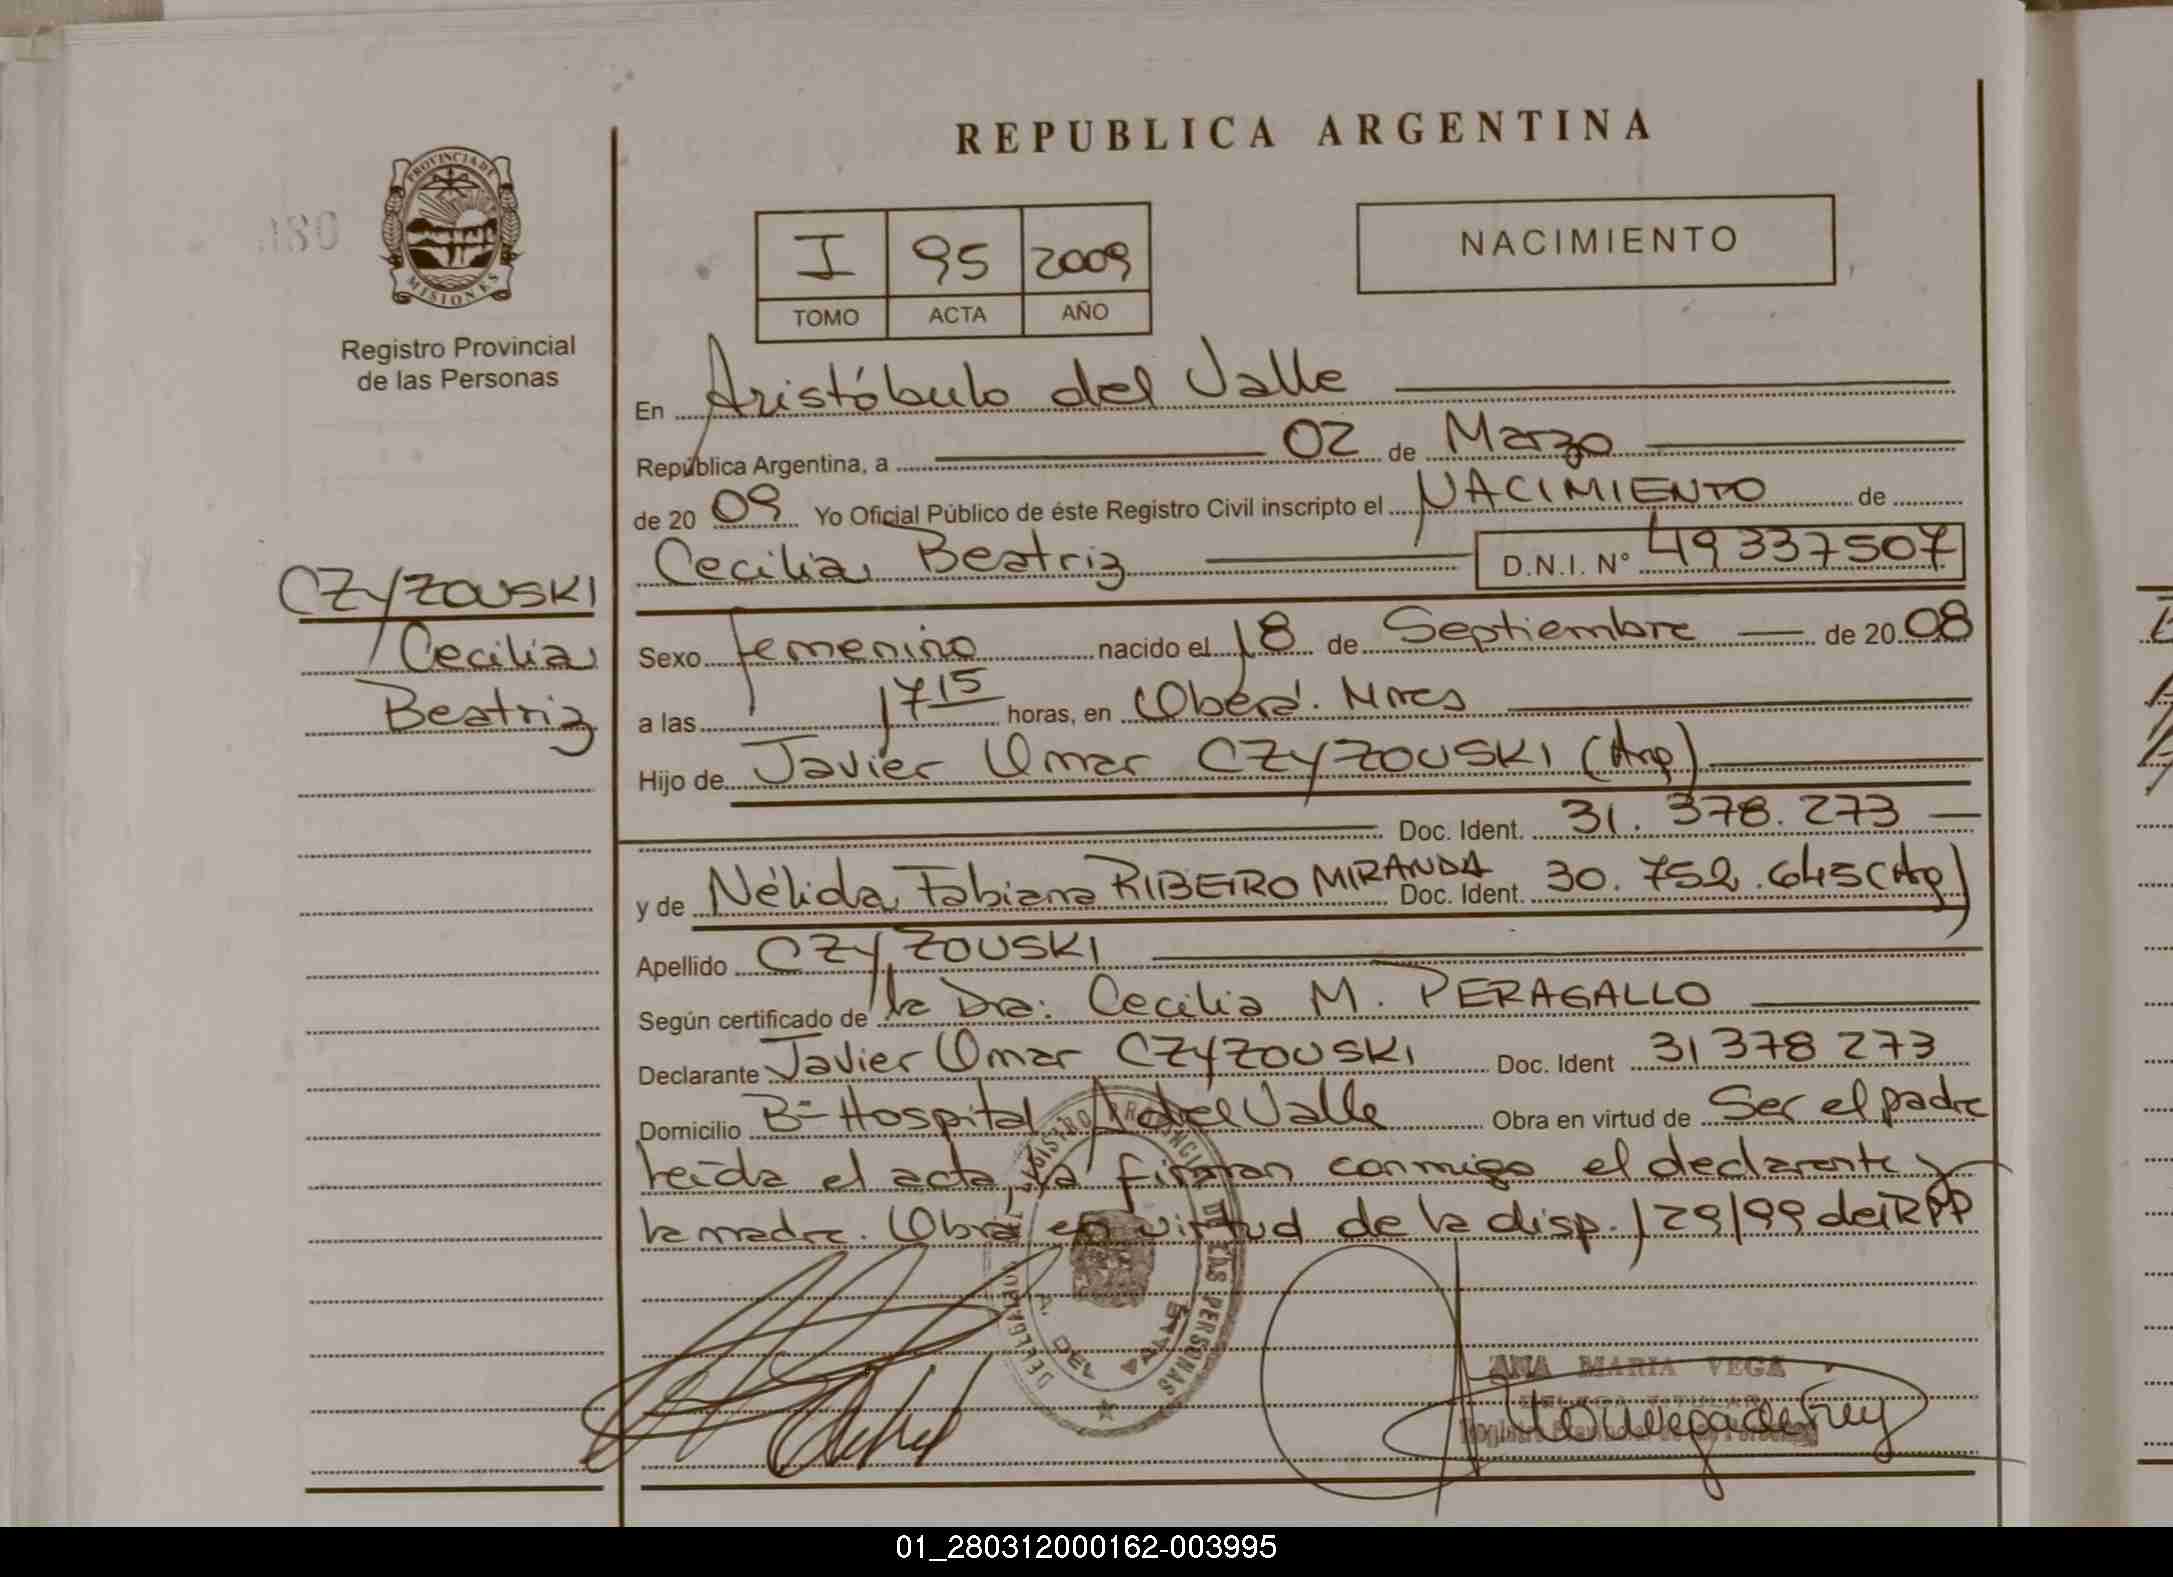 REPUBLICA ARGENTINA
180
PROVINCIA DE
MISIONES
Registro Provincial
de las Personas
I 95 2009
TOMO ACTA AÑO
NACIMIENTO
En Aristóbulo del Valle
República Argentina, a 02 de Marzo
de 20 09 Yo Oficial Público de éste Registro Civil inscripto el NACIMIENTO de
Cecilia Beatriz D.N.I. N° 49337507
CZYZOUSKI
Cecilia
Beatriz
Sexo femenino nacido el 18 de Septiembre de 20 08
a las 17 15 horas, en Oberá. Mnes
Hijo de Javier Omar CZYZOUSKI (Arg)
Doc. Ident. 31.378.273
y de Nélida Fabiana RIBEIRO MIRANDA Doc. Ident. 30.752.645 (Arg)
Apellido CZYZOUSKI
Según certificado de la Dra: Cecilia M. PERAGALLO
Declarante Javier Omar CZYZOUSKI Doc. Ident 31378273
Domicilio B= Hospital A del Valle Obra en virtud de Ser el padre
leída el acta, la firman conmigo el declarante y
la madre. Obra en virtud de la disp. 129/99 del RPP
REGISTRO PROVINCIAL DE LAS PERSONAS
A. DEL VALLE
ANA MARIA VEGA
01_280312000162-003995